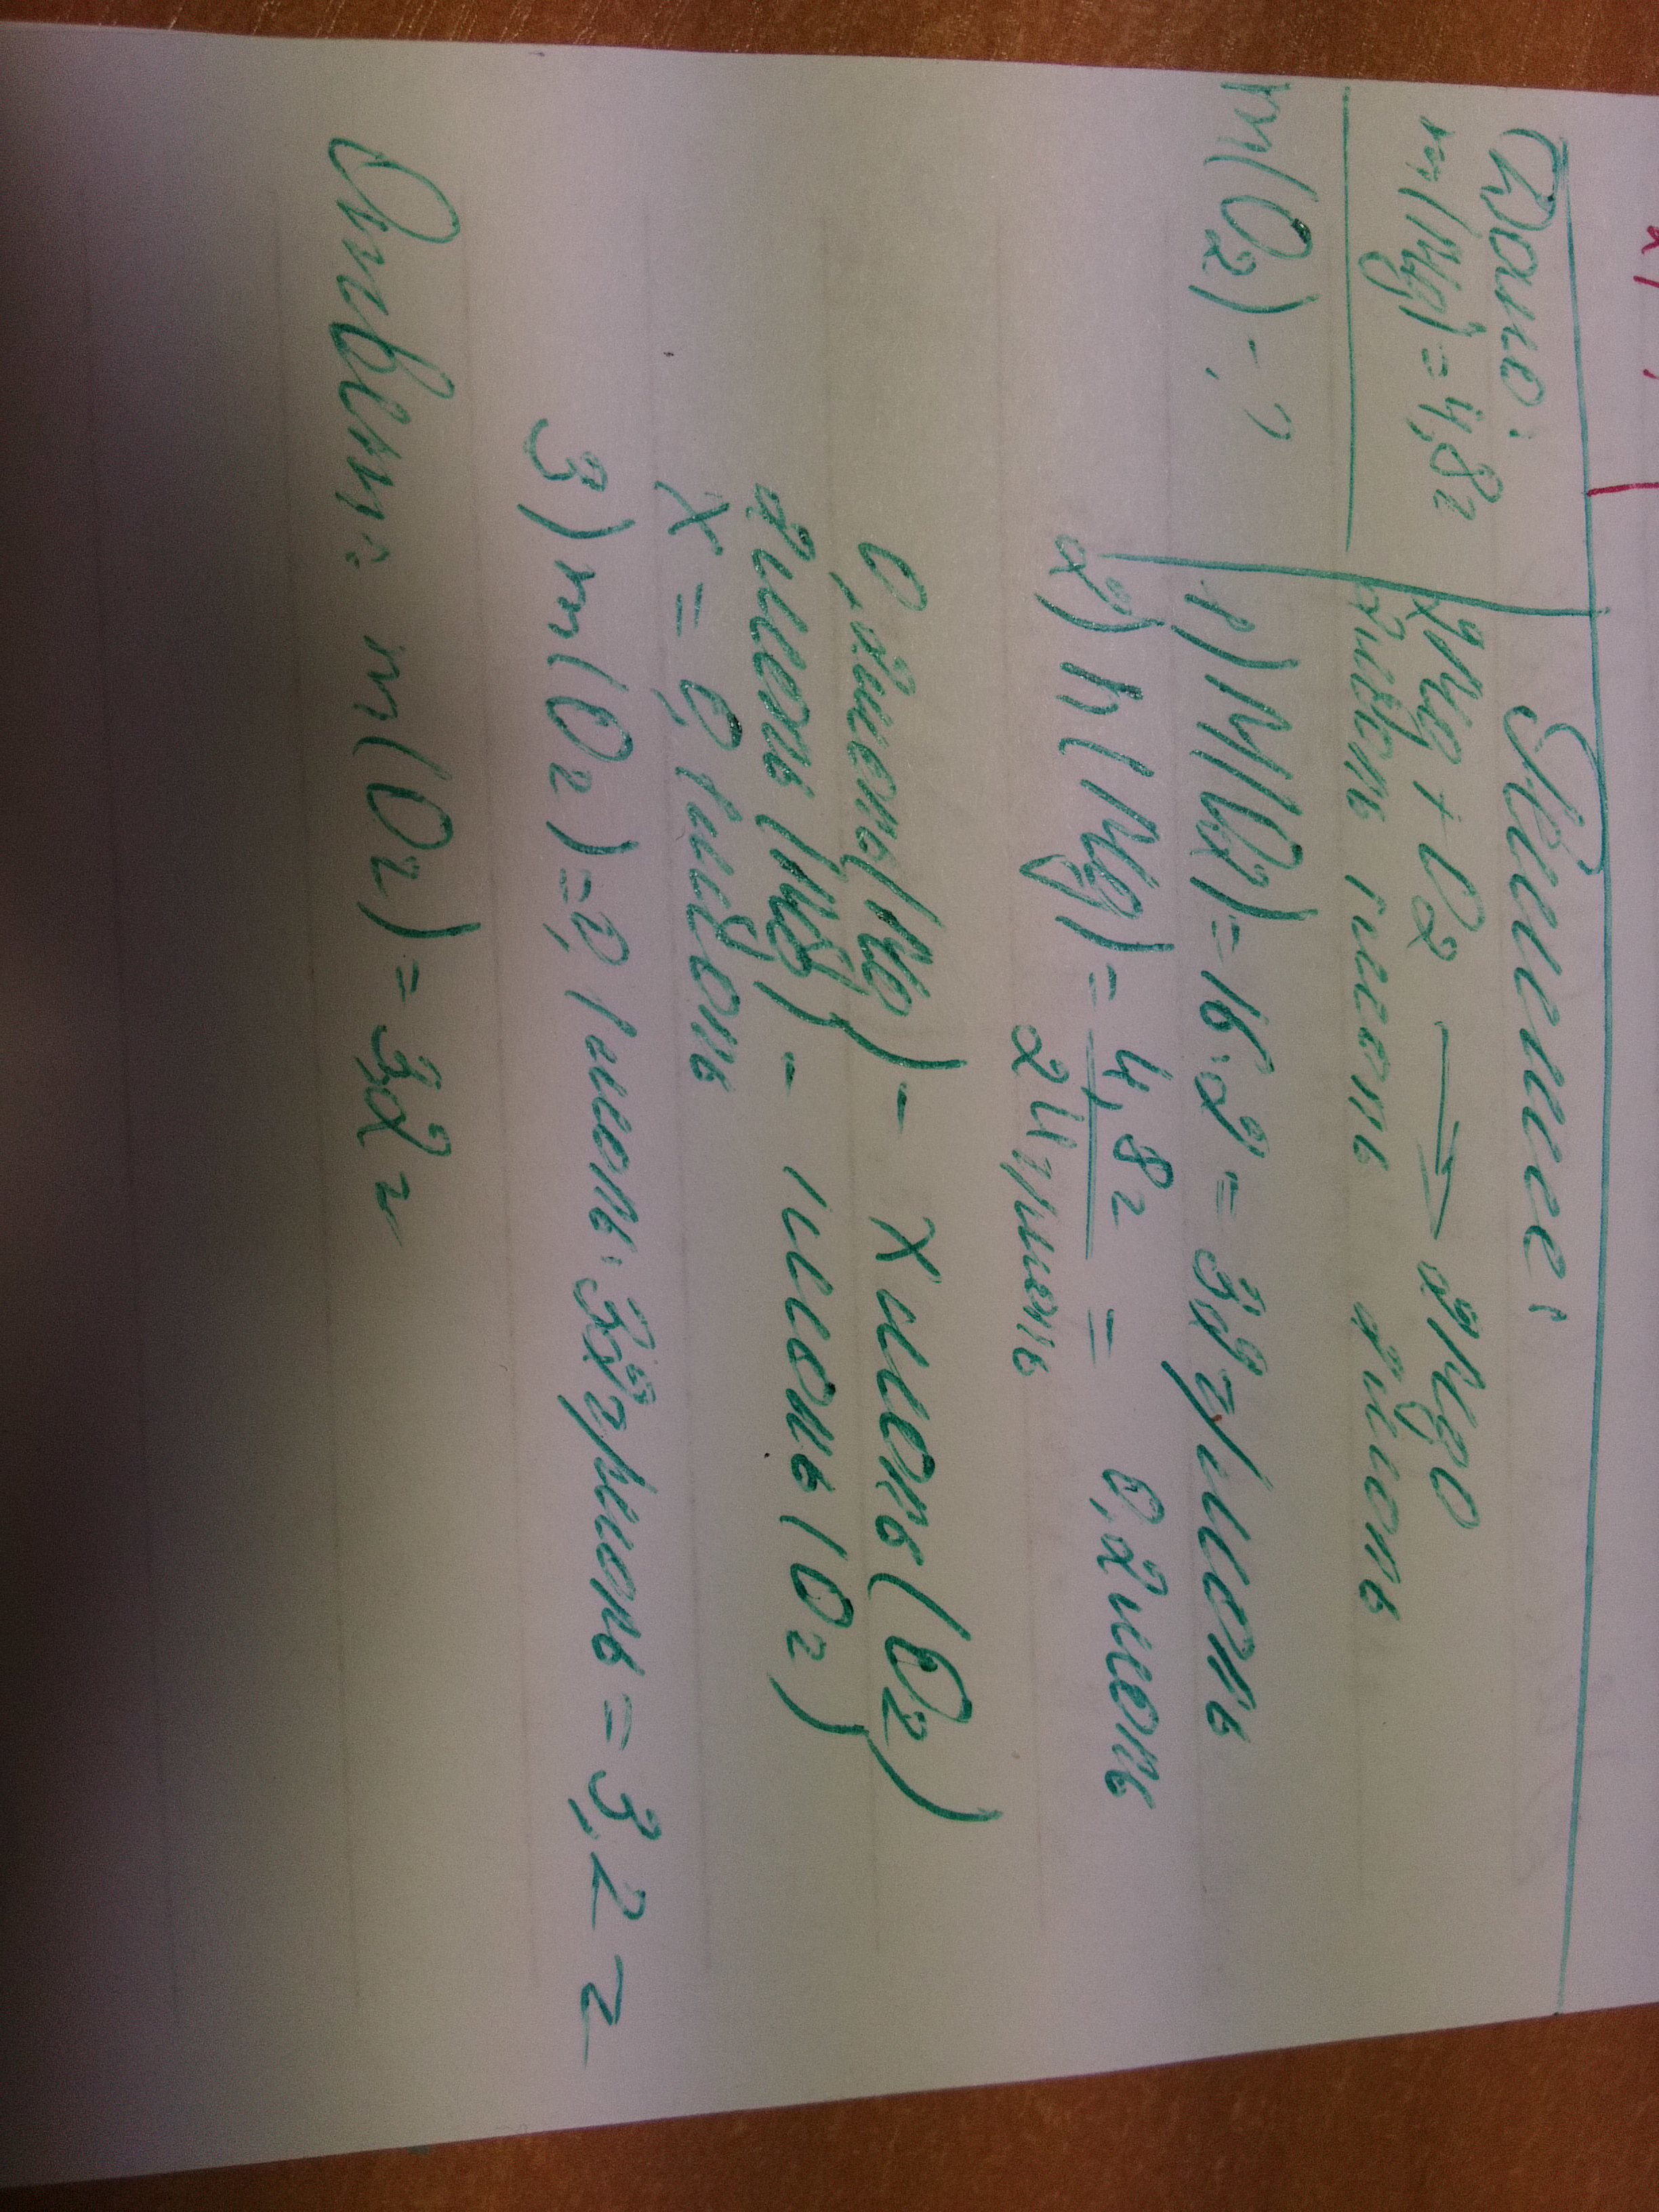 Дано:
m(Mg) = 4,8г
m(O2) - ?
Решение:
2Mg + O2 → 2MgO
2моль 1моль 2моль
1) M(O2) = 16·2 = 32 г/моль
2) n(Mg) = 4,8г / 24г/моль = 0,2моль
0,2моль(Mg) - X моль(O2)
2моль(Mg) - 1моль(O2)
X = 0,1моль
3) m(O2) = 0,1моль·32г/моль = 3,2 г
Ответ: m(O2) = 32 г